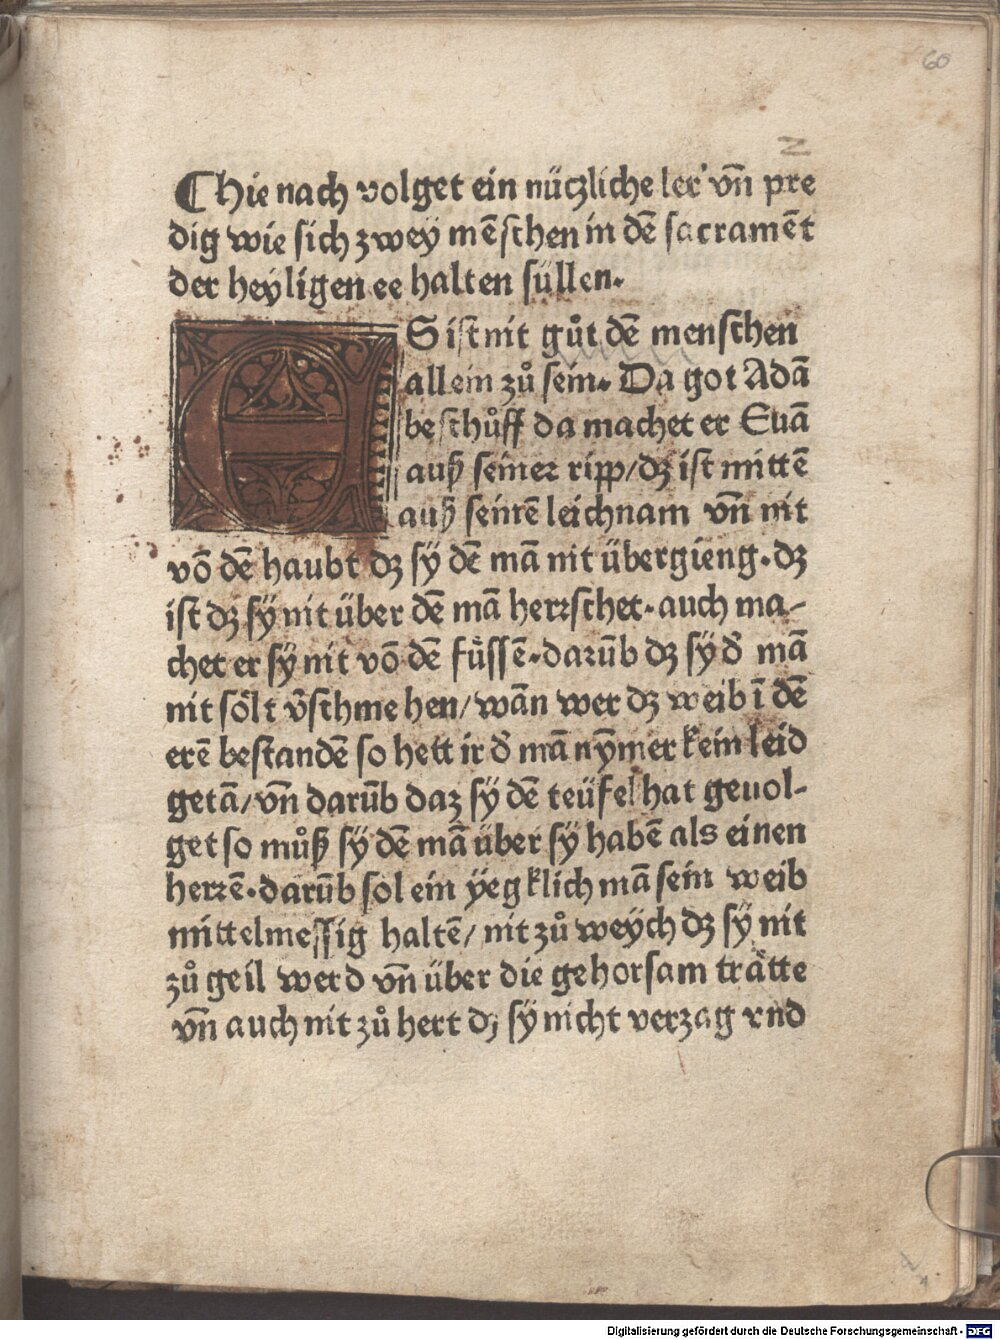 60
2
¶Hie nach volget ein nüczliche ler’ vn̄ pre
dig wie sich zwey mēschen in dē sacramēt
der heyligen ee halten süllen.
ES ist nit gůt dē menschen
allein zů sein. Da got Adā
beschůff da machet er Euā
auß seiner ripp/ dz ist mittē
auß seinē leichnam vn̄ nit
vō dē haubt dz sÿ dē mā nit übergieng. dz
ist dz sÿ nit über dē mā herrschet. auch ma-
chet er sÿ nit vō dē füssē. darūb dz sÿ d̄ mā
nit sölt v̄schmehen/ wān wer dz weib ī dē
erē bestandē so hett ir d̄ mā nȳmer kein leid
getā/ vn̄ darūb daz sÿ dē teüfel hat geuol-
get so můß sÿ dē mā über sÿ habē als einen
herrē. darūb sol ein ÿegklich mā sein weib
mittelmessig haltē/ nit zů weÿch dz sÿ nit
zů geil werd vn̄ über die gehorsam trätte
vn̄ auch nit zů hert dz sÿ nicht verzag vnd
Digitalisierung gefördert durch die Deutsche Forschungsgemeinschaft - DFG